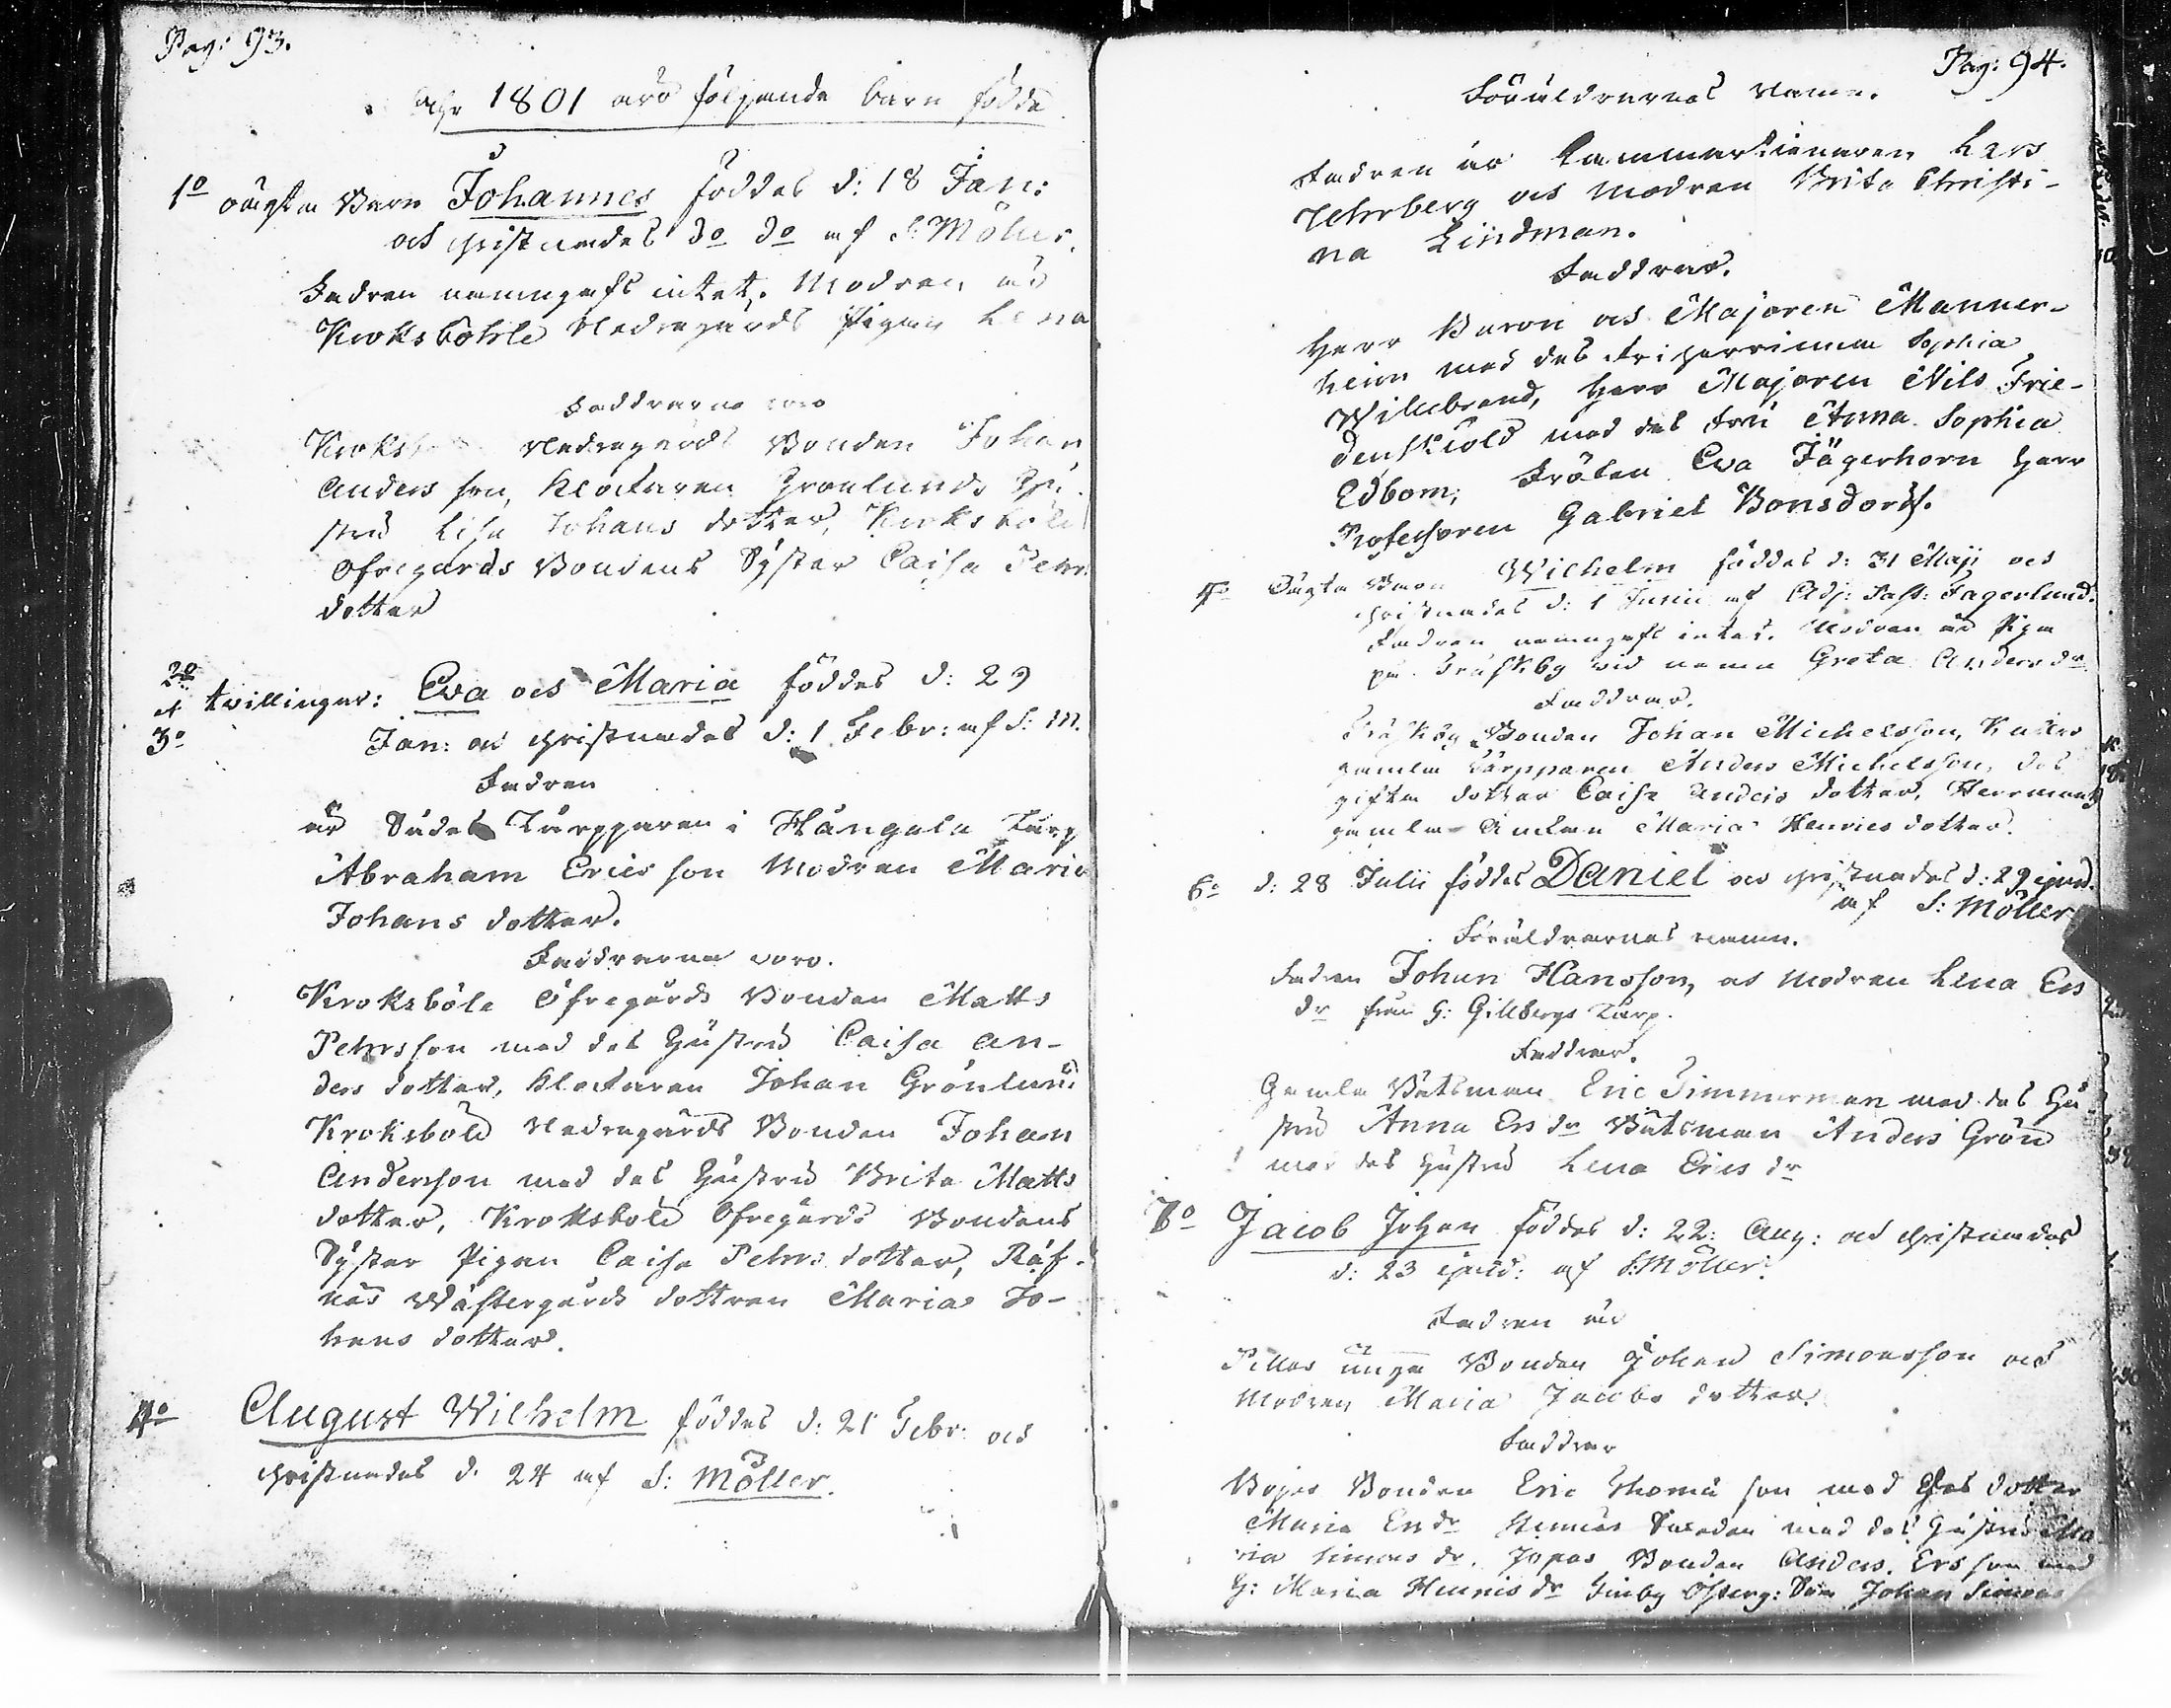 Pag: 93.
Åhr 1801 äro följande barn födde
1o oägta Barn Johannes föddes d: 18 Jan:
och christnades do do af S: Möller.
Fadren namngafs intet. Modren är
Kroksböhle Nedregårds Pigan Lena
Faddrarne voro
Nedregårds Bonden Johan
Anders son, Klockaren Grönlunds Hu-
stru Lisa Johans dotter, Kroksböle
Ofregårds Bondens Syster Caisa Pehrs
dotter
2o
et tvillingar: Eva och Maria föddes d: 29
3o
Jan: och christnades d: 1 Febr: af S: M.
Fadren
är Torpparen i Hångala Torp
Abraham Erics son Modren Maria
Johans dotter.
Faddrarna voro.
Kroksböle Öfregårds Bonden Matts
Pehrsson med des Hustru Caisa An-
ders dotter, Klockaren Johan Grönlund
Kroksböle Nedregårds Bonden Johan
Andersson med des Hustru Brita Matts
dotter, Kroksböle Ofregårds Bondens
Syster Pigan Caisa Pehrs dotter, Räf-
näs Wästergårds dottren Maria Jo-
hans dotter.
4o August Wilhelm föddes d: 21 Febr: och
christnades d. 24 af S: Möller.
Pag: 94.
Föräldrarnas namn.
Fadren är Cammartienaren Lars
och Modren Brita Christi-
na Lindman.
Faddrar.
Herr Baron och Majoren Manner-
heim med des Friherrinna Sophia
Willebrand, Herr Majoren Nils Frie-
denskiöld med des Fru Anna Sophia
Edbom, Fröken Eva Jägerhorn Herr
Professoren Gabriel Bonsdorff.
5o Oägta Barn Wilhelm föddes d: 31 Maji och
christnades d: 1 Junii af Adj: Past: Fagerlund.
Fadren namngafs intet. Modren är Piga
på Träskby vid namn Greta Anders dr
Faddrar.
Träskby Bonden Johan Michelsson,
gamla Torpparen Anders Michelsson, des
gifta dotter Caisa Anders dotter,
gamla Enkan Maria Henrics dotter.
6o d: 28 Julii föddes Daniel och christnades d: 29 ejusd.
af S: Möller
Föräldrarnas namn.
Fadren Johan Hansson, och Modren Lena Ers
dr från G: Gillbergs Torp.
Faddrar.
Gamla Båtsman Eric Timmerman med des Hu-
stru Anna Ers dr Båtsman Anders Grön
med des Hustru Lena Erics dr
7o Jacob Johan föddes d: 22: Aug: och christnades
d: 23 ejusd: af S: Möller.
Fadren är
unga Bonden Johan Simonsson och
Modren Maria Jacobs dotter.
Faddrar
Bonden Eric Thomas son med des dotter
Maria Ers dr med des Hustru Ma
ria Simons dr. Bonden Anders Ers son med
H: Maria Henrics dr Johan Simons